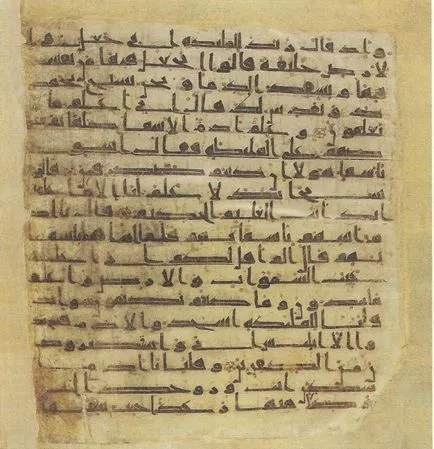 واد قال ربك للمليكه اني جعل في ا
لارض خليفه قالوا اتجعل فيها من يفسد
فيها ويسفك الدما ونحن نسبح بحمد
ك ونقدس لك قال اني اعلم ما لا
تعلمون وعلم ادم الاسما كلها ثم عر
ضهم على المليكه فقال انبوني
باسما هولا ان كنتم صدقين قالوا
سبحنك لا علم لنا الا ما علمتنا
انك انت العليم الحكيم قال يادم
انبيهم باسمايهم فلما انباهم باسما
يهم قال الم اقل لكم اني اعلم
غيب السموات والارض واعلم
ما تبدون وما كنتم تكتمون واذ
قلنا للمليكه اسجدوا لادم فسجد
وا الا ابليس ابى واستكبر وكا
ن من الكفرين وقلنا يادم ا
سكن انت وزوجك الجنه
وكلا منها رغدا حيث شيتما